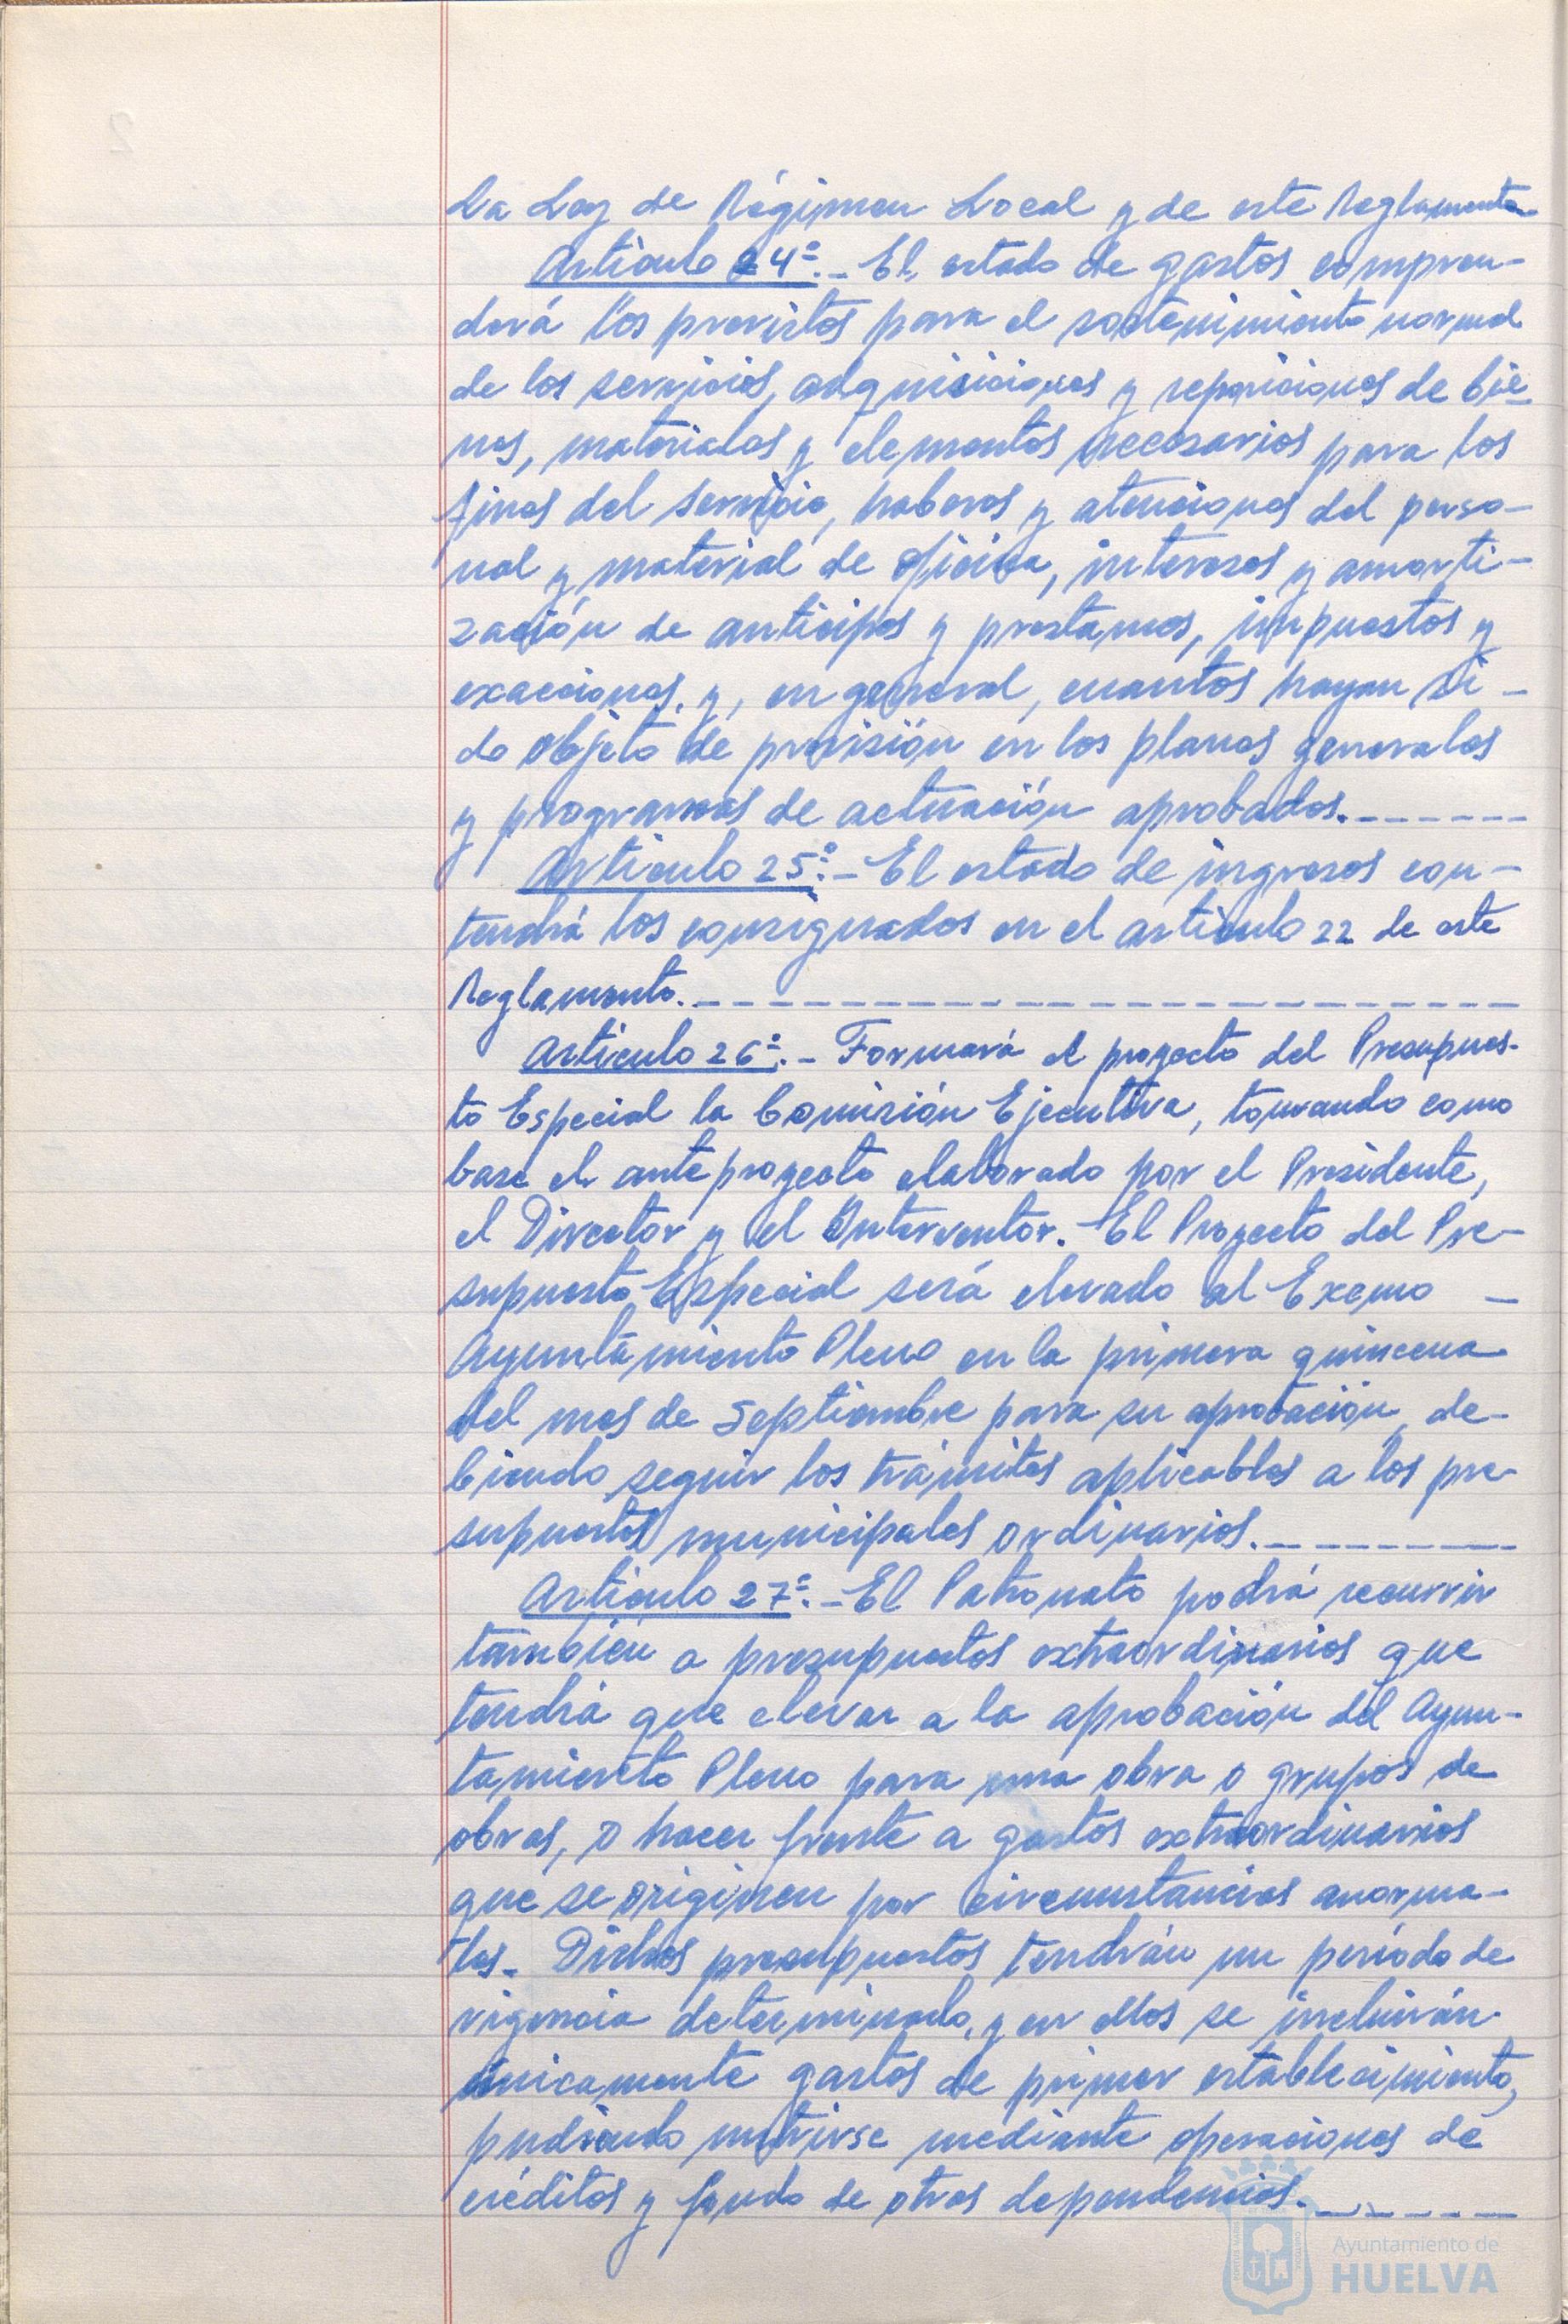 La Ley de Régimen Local y de este Reglamento
Artículo 24º.- El estado de gastos compren-
derá los previstos para el sostenimiento normal
de los servicios, adquisiciones y reposiciones de bie-
nes, materiales y elementos necesarios para los
fines del servicio, haberes y atenciones del perso-
nal y material de oficina, intereses y amorti-
zación de anticipos y prestamos, impuestos y
exacciones, y, en general, cuantos hayan si-
do objeto de previsión en los planes generales
y programas de actuación aprobados.-------
Artículo 25º.- El estado de ingresos con-
tendrá los consignados en el artículo 22 de este
Reglamento.-----------------------
Artículo 26º.- Formará el proyecto del Presupues-
to Especial la Comisión Ejecutiva, tomando como
base el anteproyecto elaborado por el Presidente,
el Director y el Interventor. El Proyecto del Pre-
supuesto Especial será elevado al Excmo -
Ayuntamiento Pleno en la primera quincena
del mes de Septiembre para su aprobación, de-
biendo seguir los trámites aplicables a los pre-
supuestos municipales ordinarios.---------
Artículo 27º.- El Patronato podrá recurrir
también a presupuestos extraordinarios que
tendrá que elevar a la aprobación del Ayun-
tamiento Pleno para una obra o grupos de
obras, o hacer frente a gastos extraordinarios
que se originen por circunstancias anorma-
les. Dichos presupuestos tendrán un período de
vigencia determinado, y en ellos se incluirán
únicamente gastos de primer establecimiento,
pudiendo nutrirse mediante operaciones de
créditos y fondo de otras dependencias.-------
Ayuntamiento de
HUELVA